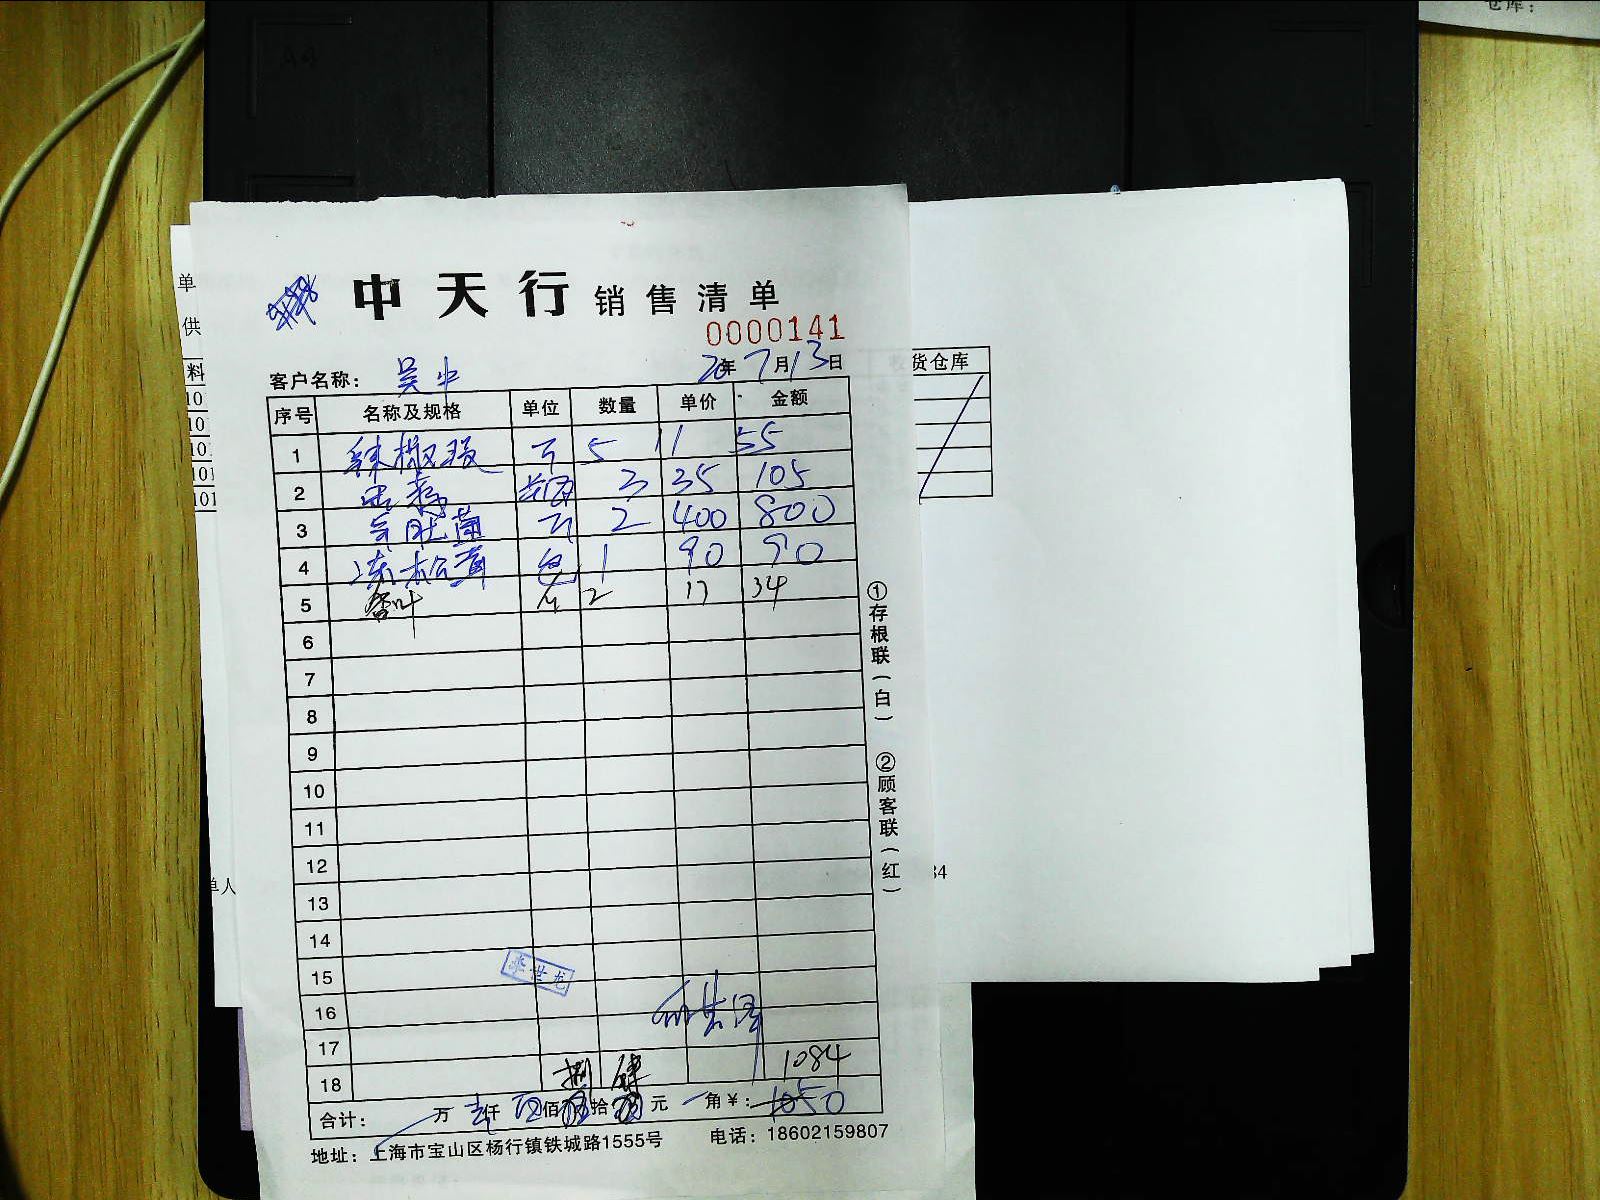 仓库：
单
中天行 销售清单
0000141
供
客户名称： 吴中 20年7月13日
货仓库
料
序号 名称及规格 单位 数量 单价 金额
10
1 辣椒段 5 11 55
10
2 3 35 105
10
3 羊肚菌 2 400 800
101
4 冻松茸 包 1 90 90
101
5 香叶 2 17 34
6
7
8
9
10
11
12
13
14
15
16
17
18 捌 肆 1084
合计： 万 仟 佰 拾 元 角¥： 1050
地址：上海市宝山区杨行镇铁城路1555号 电话：18602159807
①存根联（白） ②顾客联（红）
单人
84
李世龙